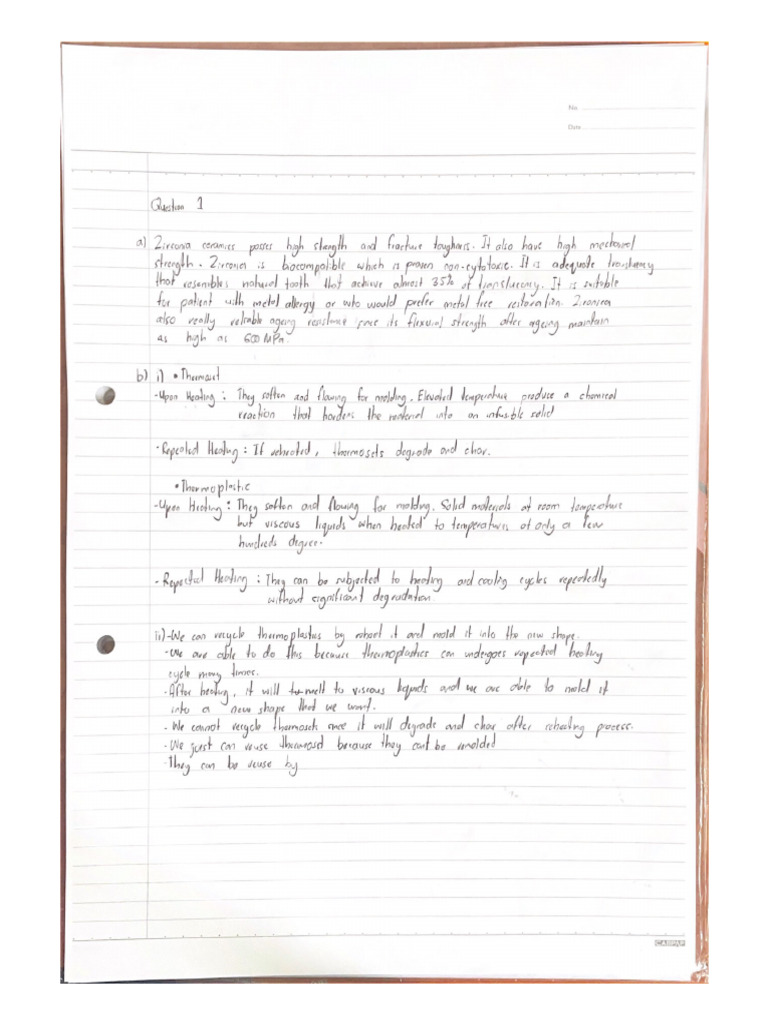 No.
Date
Question 1
a) Zirconia ceramics posses high strength and fracture toughness. It also have high mechanical
strength. Zirconia is biocompatible which is proven non-cytotoxic. It is adequate translucency
that resembles natural tooth that achieve almost 35% of translucency. It is suitable
for patient with metal allergy or who would prefer metal free restoration. Zironica
also really reliable ageing resistance since its flexural strength after ageing maintain
as high as 600 MPa.
b) i) • Thermoset
- Upon Heating : They soften and flowing for molding. Elevated temperature produce a chemical
reaction that hardens the material into an infusible solid
- Repeated Heating : If reheated, thermosets degrade and char.
• Thermoplastic
- Upon Heating : They soften and flowing for molding. Solid materials at room temperature
but viscous liquids when heated to temperatures of only a few
hundreds degree.
- Repeated Heating : They can be subjected to heating and cooling cycles repeatedly
without significant degradation
ii) - We can recycle thermoplastics by reheat it and mold it into the new shape.
- We are able to do this because thermoplastics can undergoes repeated heating
cycle many times.
- After heating, it will melt to viscous liquids and we are able to mold it
into a new shape that we want.
- We cannot recycle thermosets since it will degrade and char after reheating process.
- We just can reuse thermosed because they cant be remolded
- They can be reuse by
CAMPAP